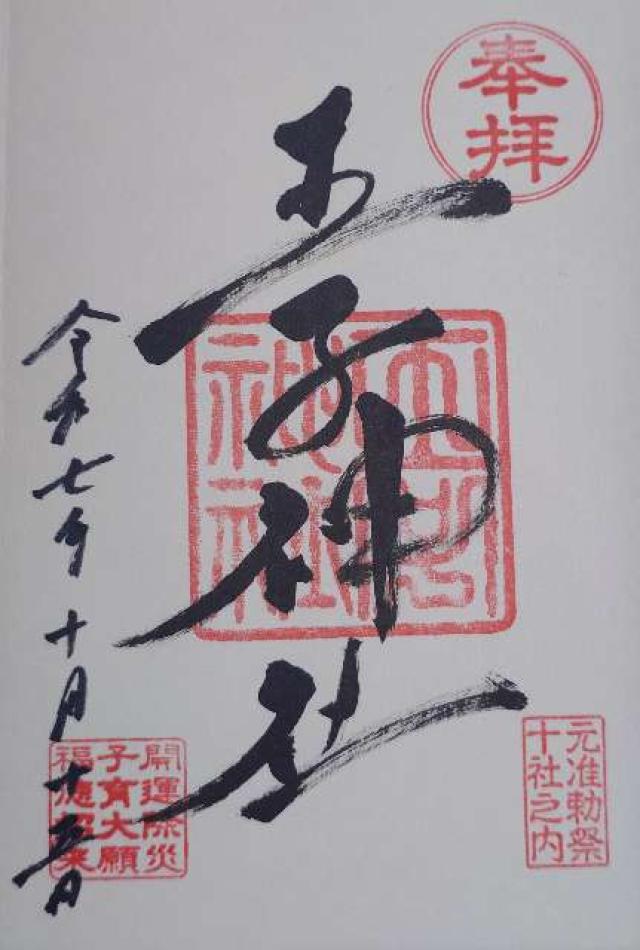 奉拝
王子神社
王子神社
元准勅祭
十社之内
開運除災
子育大願
令和七年十月十五日